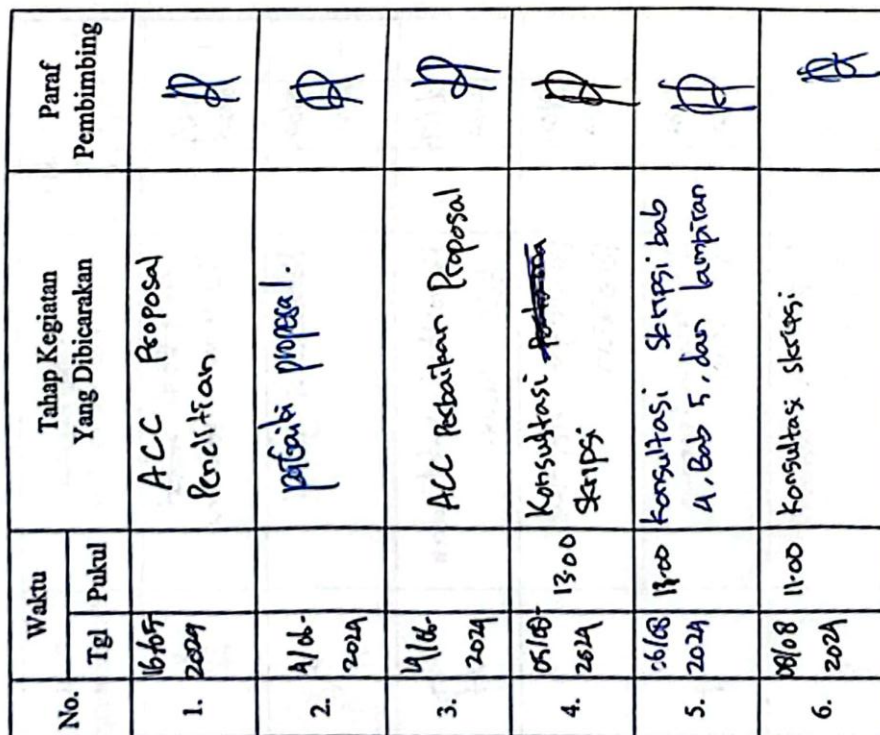 No.
Waktu
Tahap Kegiatan
Yang Dibicarakan
Paraf
Pembimbing
Tgl
Pukul
1.
16/05-
2024
ACC Proposal
Penelitian
2.
4/06-
2024
perbaiki proposal.
3.
14/06-
2024
ACC Perbaikan Proposal
4.
05/08-
2024
13:00
Konsultasi
Skripsi
5.
06/08
2024
13:00
Konsultasi Skripsi bab
4, Bab 5, dan lampiran
6.
08/08
2024
11:00
Konsultasi skripsi